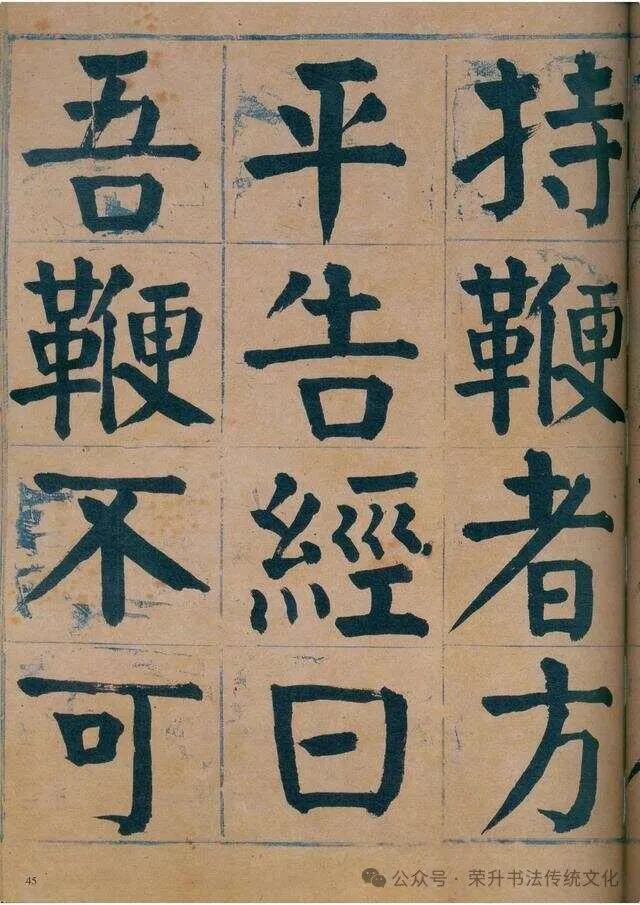 持鞭者方
平告經曰
吾鞭不可
45
公众号·荣升书法传统文化